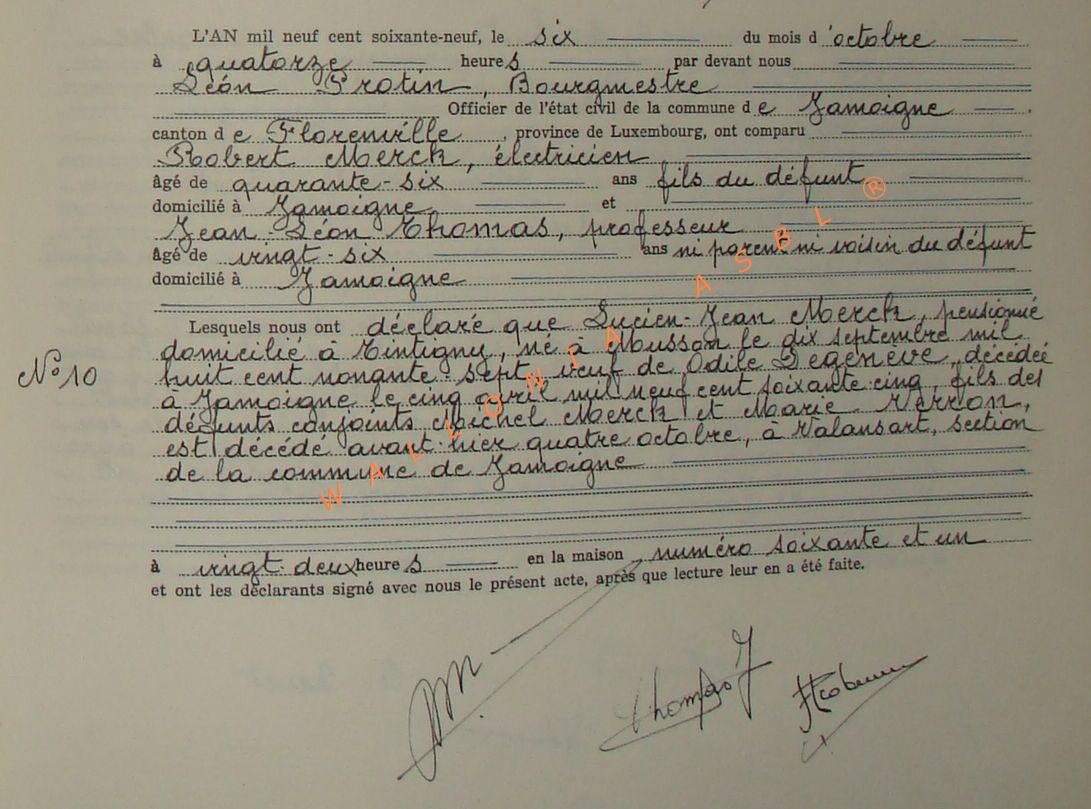 L'AN mil neuf cent soixante-neuf, le six du mois d'octobre
à quatorze heures par devant nous
Léon Protin, Bourgmestre
Officier de l'état civil de la commune de Jamoigne.
canton de Florenville, province de Luxembourg, ont comparu
Robert Merck, électricien
âgé de quarante-six ans fils du défunt
domicilié à Jamoigne et
Jean-Léon Thomas, professeur
âgé de vingt-six ans ni parent ni voisin du défunt
domicilié à Jamoigne
Lesquels nous ont déclaré que Lucien-Jean Merck, pensionné
domicilié à Tintigny, né à Musson le dix septembre mil
N° 10 huit cent nonante-sept, veuf de Odile Degenève, décédée
à Jamoigne le cinq avril mil neuf cent soixante cinq, fils des
défunts conjoints Michel Merck et Marie
est décédé avant-hier quatre octobre, à Valansart, section
de la commune de Jamoigne
à vingt-deux heures en la maison, numéro soixante et un
et ont les déclarants signé avec nous le présent acte, après que lecture leur en a été faite.
Thomas J
WALLONIA ASBL ®